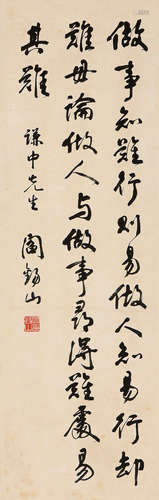 做事知難行則易做人知易行却
難毋論做人与做事尋得難處易
其難
謙中先生
閻錫山